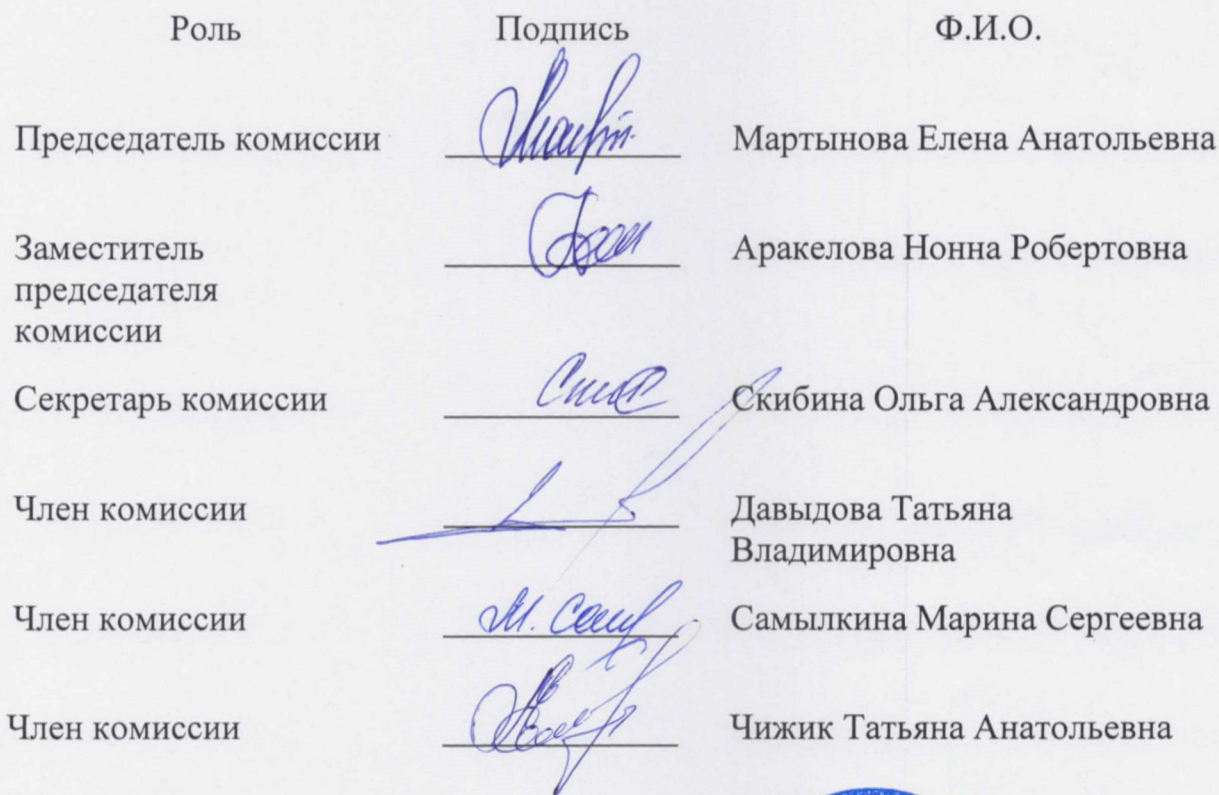 Роль Подпись Ф.И.О.
Председатель комиссии Мартынова Елена Анатольевна
Заместитель Аракелова Нонна Робертовна
председателя
комиссии
Секретарь комиссии Скибина Ольга Александровна
Член комиссии Давыдова Татьяна
Владимировна
Член комиссии М. Сам Самылкина Марина Сергеевна
Член комиссии Чижик Татьяна Анатольевна